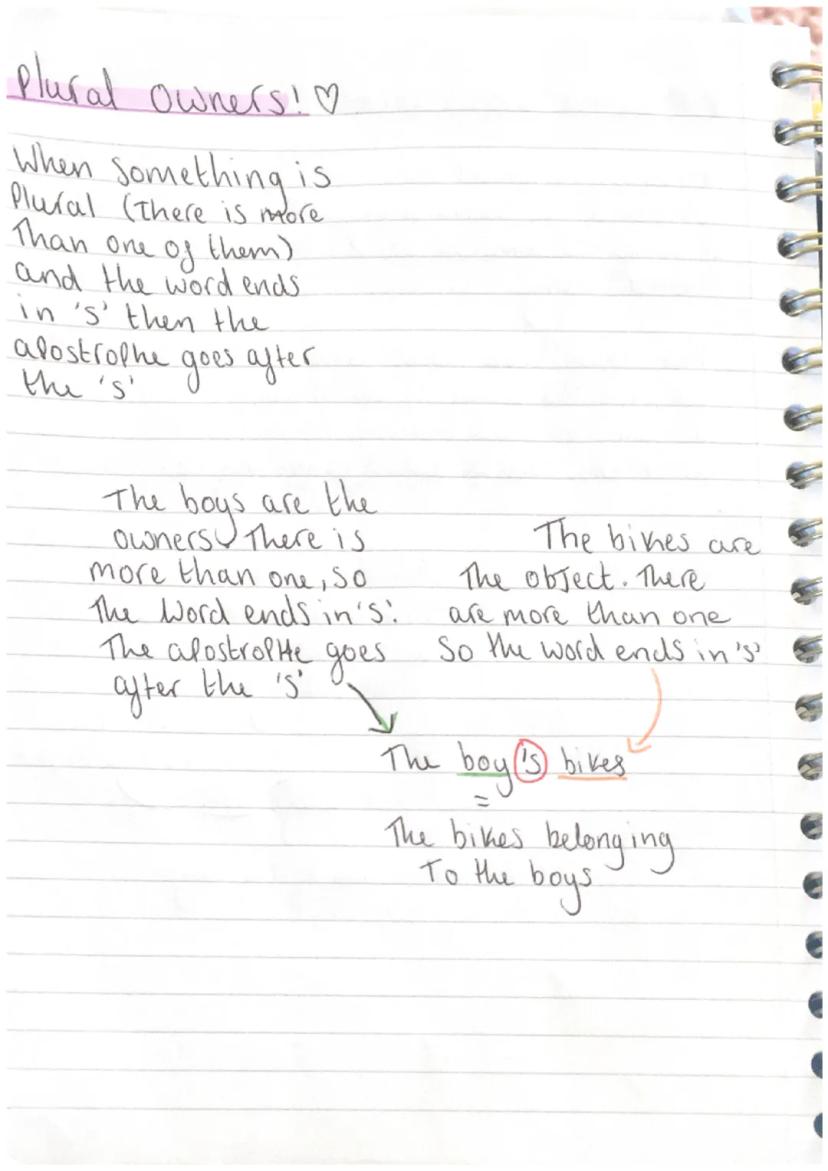 Plural Owners! ♡
When something is
Plural (There is more
Than one of them)
and the word ends
in 's' then the
apostrophe goes after
the 's'
The boys are the
owners. There is
more than one, so
The Word ends in 's'.
The apostrophe goes
after the 's'
The bikes are
The object. There
are more than one
So the word ends in 's'
The boy's bikes
=
The bikes belonging
To the boys